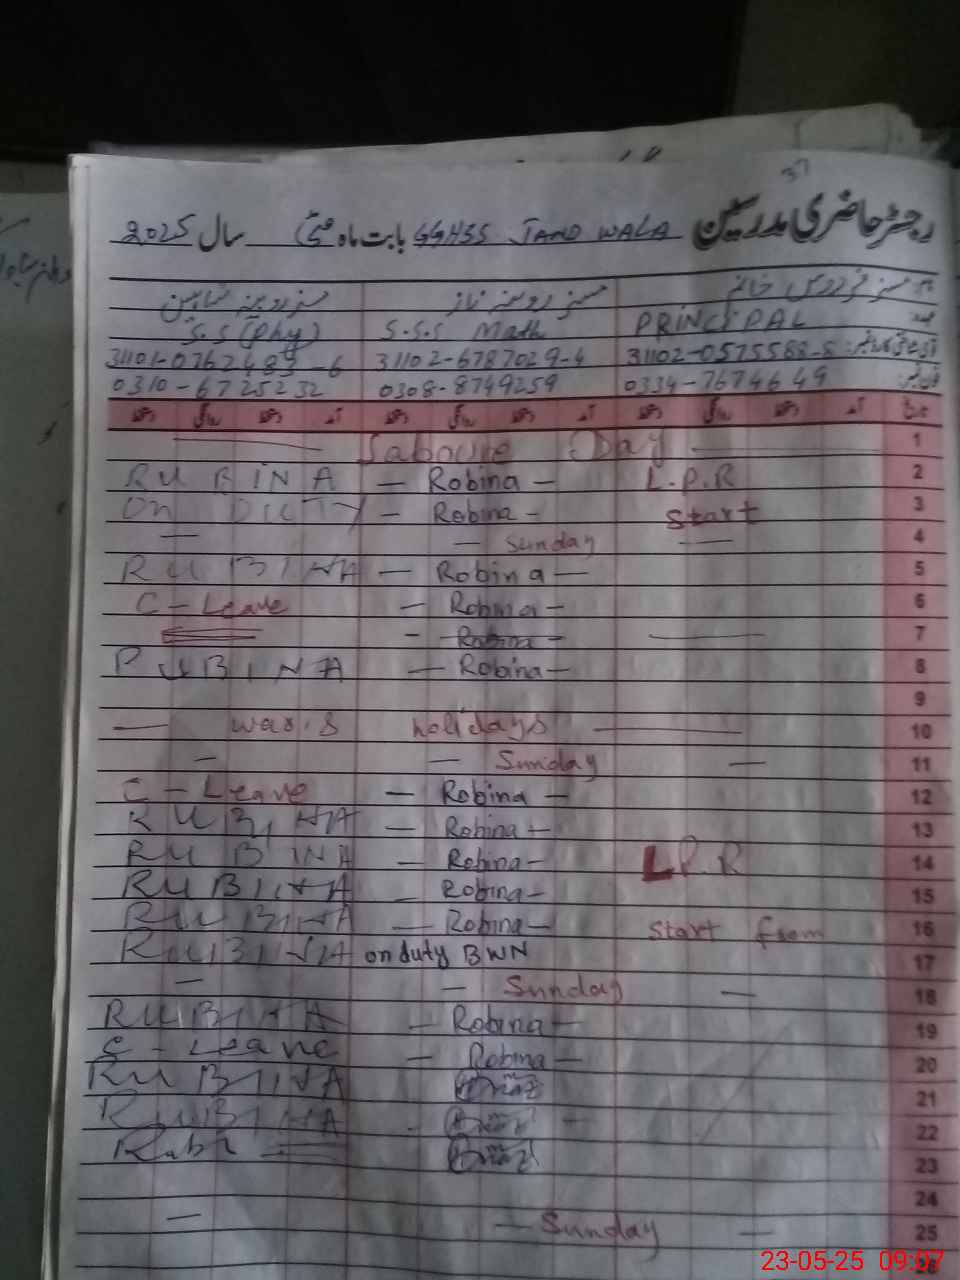 37
رجسٹر حاضری مدرسین GGHSS JAND WALA بابت ماہ مئی سال 2025
مسز فردوس خانم مسز روبینہ ناز مسز روبینہ شاہین
PRINCIPAL S.S.S Math S.S (Phy)
31102-0575588-8 31102-6787029-4 31101-0762489-6
0334-7674649 0308-8749259 0310-6725232
آمد دستخط روانگی دستخط آمد دستخط روانگی دستخط آمد دستخط روانگی دستخط
1 — Labour Day —
2 RUBINA — Robina — L.P.R
3 On DUTY — Robina — Start
4 — — Sunday —
5 RUBINA — Robina —
6 C-Leave — Robina —
7 — Robina — —
8 RUBINA — Robina —
9
10 — war.s holidays —
11 — — Sunday —
12 C-Leave — Robina —
13 RUBINA — Robina —
14 RUBINA — Robina — L.P.R
15 RUBINA — Robina —
16 RUBINA — Robina — Start from
17 RUBINA on duty BWN
18 — — Sunday —
19 RUBINA — Robina —
20 C-Leave — Robina —
21 RUBINA
22 RUBINA —
23 Rubi
24
25 — — Sunday —
26
23-05-25 09:07